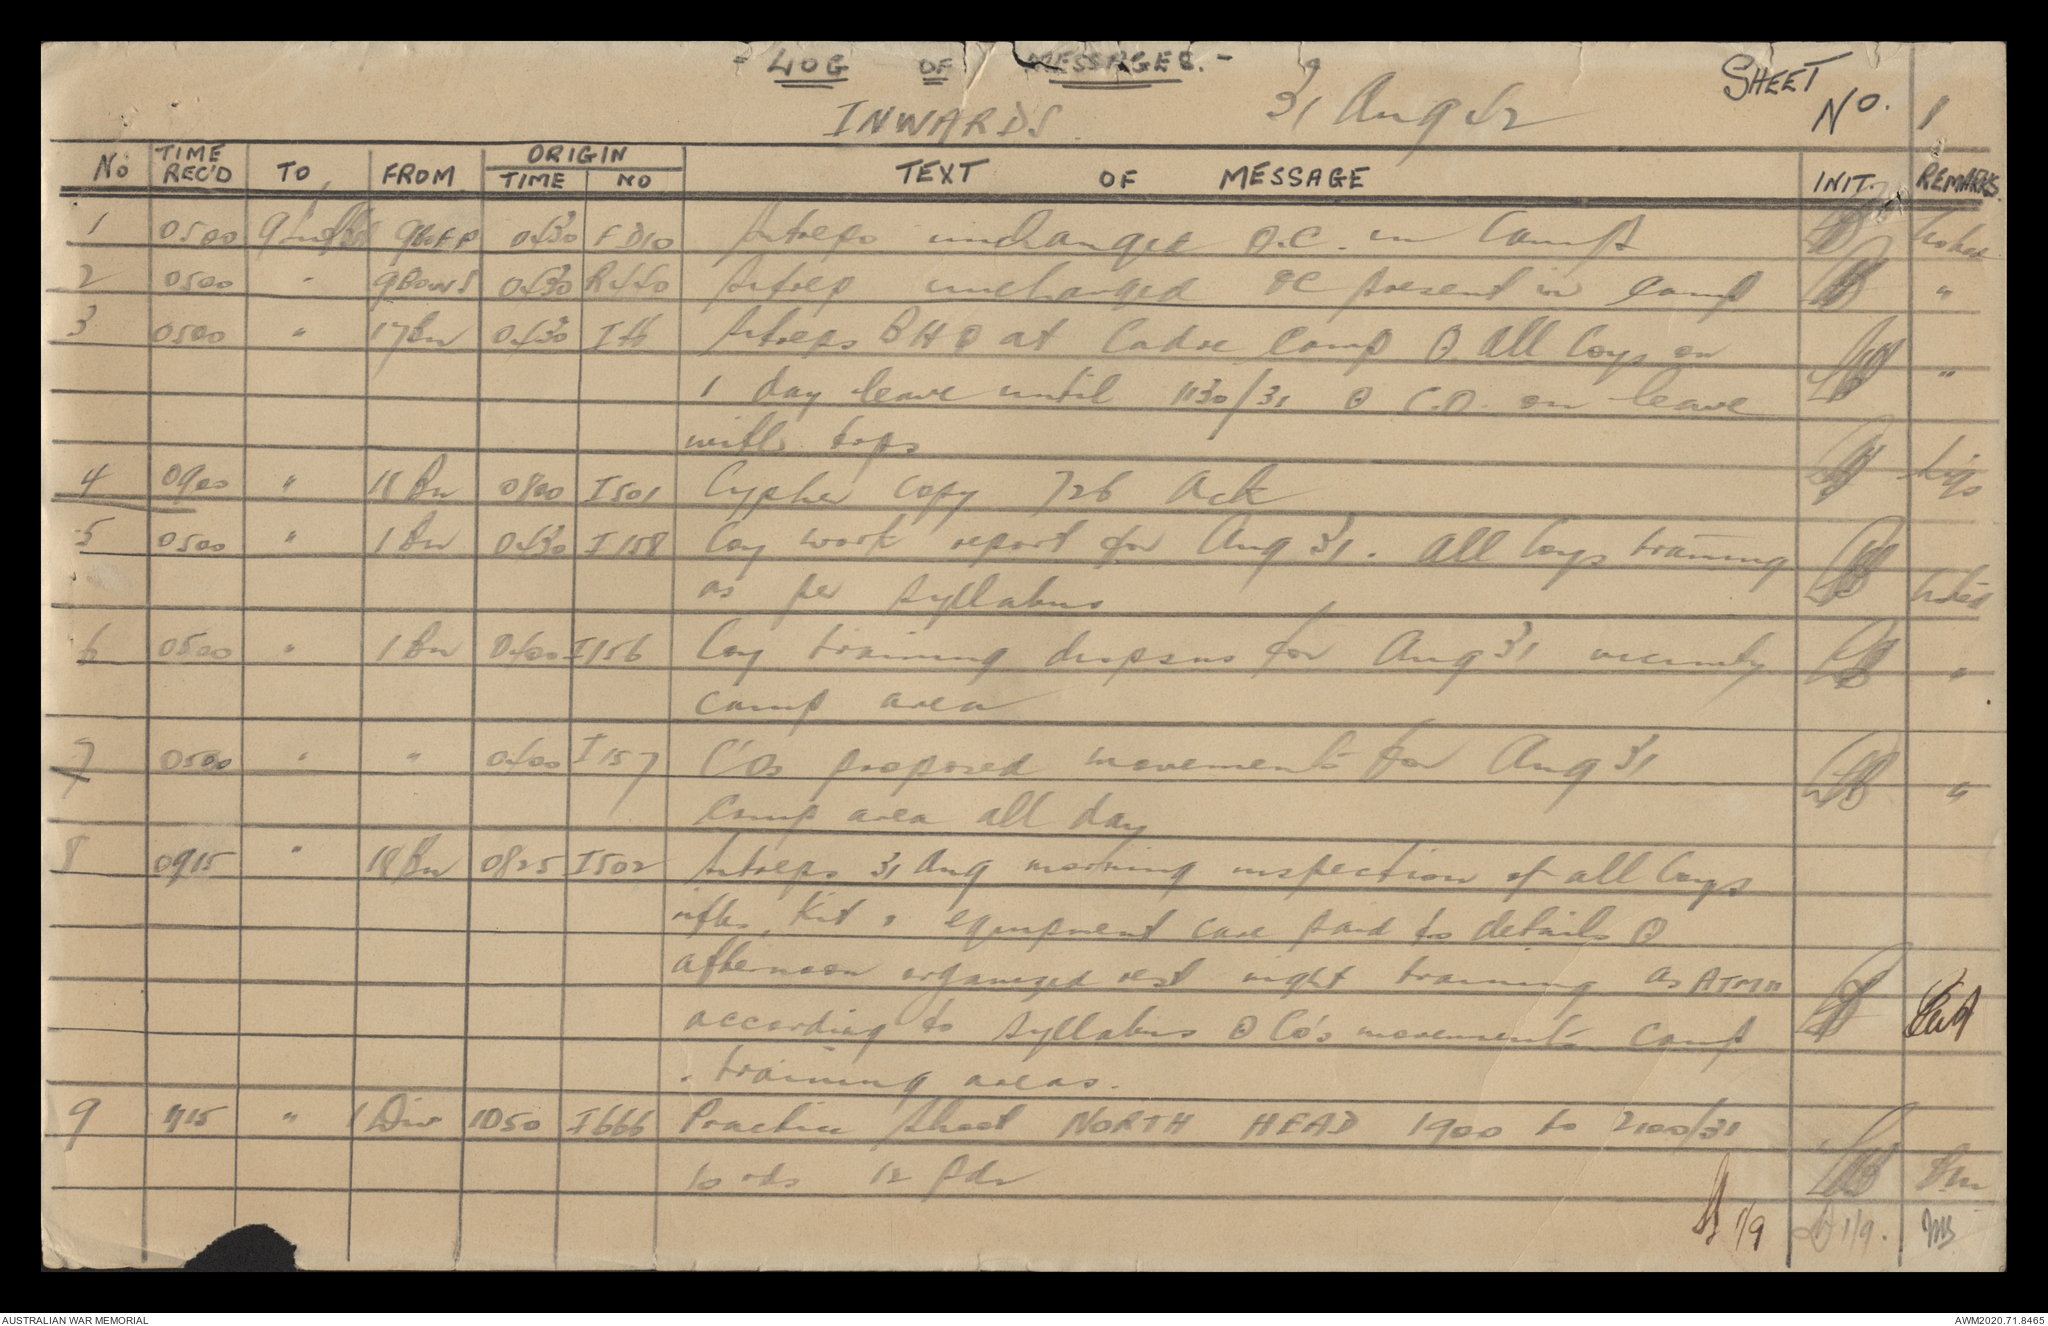 - LOG OF MESSAGES. -
INWARDS 31 Aug 42 SHEET No. 1
No TIME REC'D TO FROM ORIGIN TIME NO TEXT OF MESSAGE INIT. REMARKS
1 0500 0430 FD10 Sitreps unchanged O.C. in Camp Noted
2 0500 " 0430 R440 Sitrep unchanged OC present in Camp "
3 0500 " 17 Bn 0430 I46 Sitreps BHQ at Cadre Camp ⊙ All Coys on "
1 day leave until 1130/31 ⊙ C.O. on leave
with tps
4 0900 " 18 Bn 0800 I501 Cypher Copy 726 Ack Sigs
5 0500 " 1 Bn 0430 I158 Coy work report for Aug 31. All Coys training
as per syllabus Noted
6 0500 " 1 Bn 0400 I156 Coy training dispsns for Aug 31 vicinity "
camp area
7 0500 " " 0400 I157 C'Os proposed movements for Aug 31 "
Camp area all day
8 0915 " 18 Bn 0825 I502 Sitreps 31 Aug morning inspection of all Coys
rifles, Kit, equipment care paid to details ⊙
afternoon organized rest night training as
according to syllabus ⊙ Co's movements camp
. training areas.
9 1115 " 1 Div 1050 I666 Practice Shoot NORTH HEAD 1900 to 2100/31
10 rds 12 pdr
1/9 1/9.
AUSTRALIAN WAR MEMORIAL AWM2020.71.8465